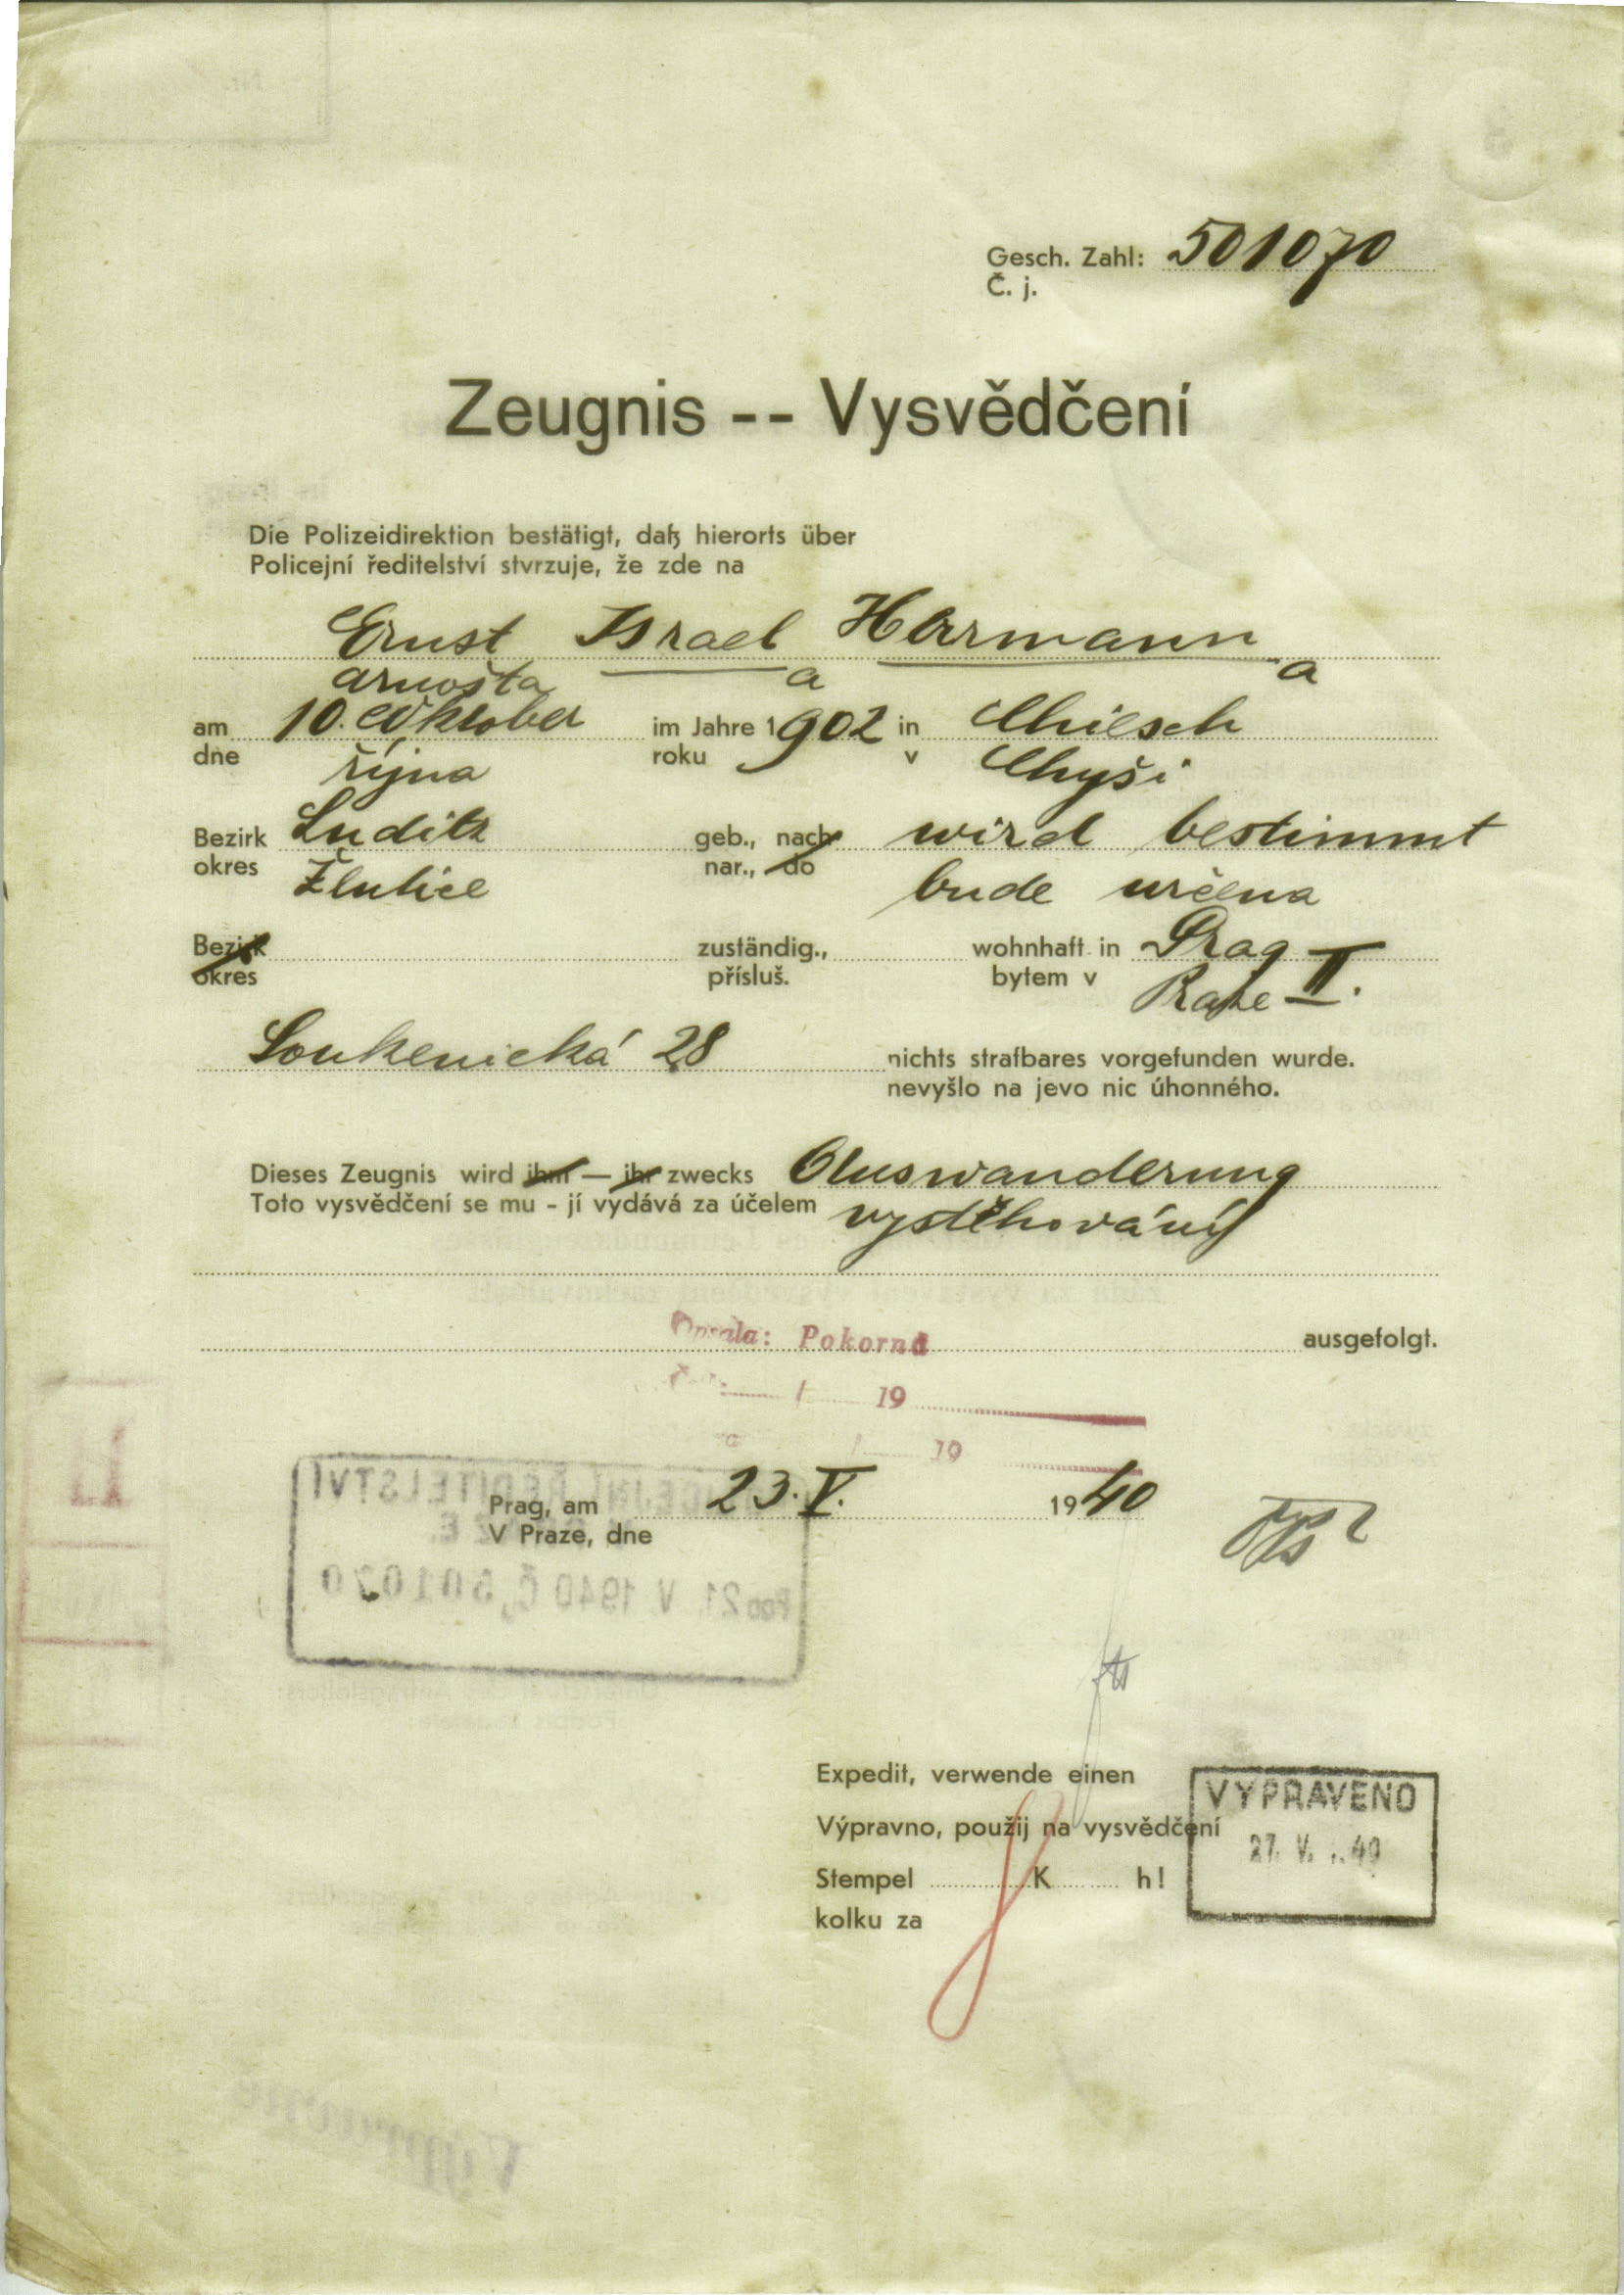 Gesch. Zahl: 501070
Č. j.
Zeugnis -- Vysvědčení
Die Polizeidirektion bestätigt, daß hierorts über
Policejní ředitelství stvrzuje, že zde na
Ernst Israel Herrmann
Arnošta a a
am 10. Oktober im Jahre 1902 in Chiesch
dne října roku v Chyši
Bezirk Luditz geb., nach wird bestimmt
okres Žlutice nar., do bude určena
Bezirk zuständig., wohnhaft in Prag II.
okres přísluš. bytem v Praze
Soukenická 28 nichts strafbares vorgefunden wurde.
nevyšlo na jevo nic úhonného.
Dieses Zeugnis wird ihm — ihr zwecks Auswanderung
Toto vysvědčení se mu - jí vydává za účelem vystěhování
Opsala: Pokorná ausgefolgt.
/ 19
/ 19
POLICEJNÍ ŘEDITELSTVÍ
Prag, am 23. V. 1940
V Praze, dne
Pod 21 V 1940 Č. 501070
Expedit, verwende einen
Výpravno, použij na vysvědčení
Stempel K h!
kolku za
VYPRAVENO
27. V. 40
Vypraveno